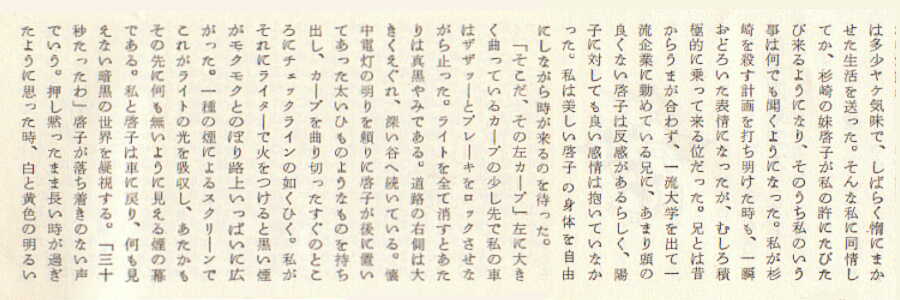 は多少ヤケ気味で、しばらく惰にまか
せた生活を送った。そんな私に同情し
てか、杉崎の妹啓子が私の許にたびた
び来るようになり、そのうち私のいう
事は何でも聞くようになった。私が杉
崎を殺す計画を打ち明けた時も、一瞬
おどろいた表情になったが、むしろ積
極的に乗って来る位だった。兄とは昔
からうまが合わず、一流大学を出て一
流企業に勤めている兄に、あまり頭の
良くない啓子は反感があるらしく、陽
子に対しても良い感情は抱いていなか
った。私は美しい啓子の身体を自由
にしながら時が来るのを待った。
「そこだ、その左カーブ」左に大き
く曲っているカーブの少し先で私の車
はザザッーとブレーキをロックさせな
がら止った。ライトを全て消すとあた
りは真黒やみである。道路の右側は大
きくえぐれ、深い谷へ続いている。懐
中電灯の明りを頼りに啓子が後に置い
てあった太いひものようなものを持ち
出し、カーブを曲り切ったすぐのとこ
ろにチェックラインの如くひく。私が
それにライターで火をつけると黒い煙
がモクモクとのぼり路上いっぱいに広
がった。一種の煙によるスクリーンで
これがライトの光を吸収し、あたかも
その先に何も無いように見える煙の幕
である。私と啓子は車に戻り、何も見
えない暗黒の世界を凝視する。「三十
秒たったわ」啓子が落ち着きのない声
でいう。押し黙ったまま長い時が過ぎ
たように思った時、白と黄色の明るい